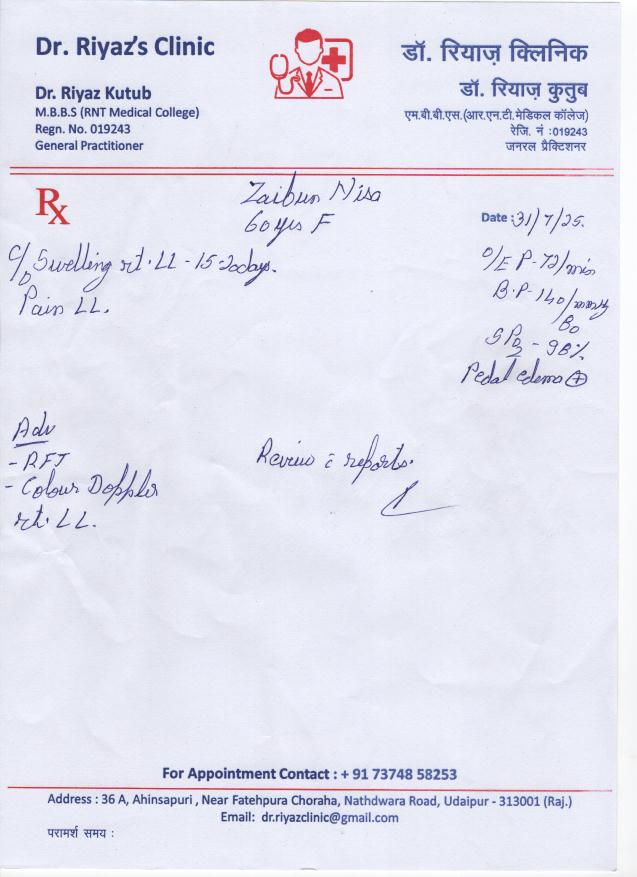 Dr. Riyaz's Clinic
Dr. Riyaz Kutub
M.B.B.S (RNT Medical College)
Regn. No. 019243
General Practitioner
डॉ. रियाज़ क्लिनिक
डॉ. रियाज़ कुतुब
एम.बी.बी.एस.(आर.एन.टी.मेडिकल कॉलेज)
रेजि. नं :019243
जनरल प्रैक्टिशनर
Rx
Zaibun Nisa
60 yrs F
Date : 31/7/25.
C/o Swelling rt. LL - 15-20days.
Pain LL.
O/E P-72/min
B.P- 140/mmHg
80
SPO2 - 98%
Pedal edema +
Adv
- RFT
- Colour Doppler
rt. LL.
Review c reports.
For Appointment Contact : + 91 73748 58253
Address : 36 A, Ahinsapuri , Near Fatehpura Choraha, Nathdwara Road, Udaipur - 313001 (Raj.)
Email: dr.riyazclinic@gmail.com
परामर्श समय :